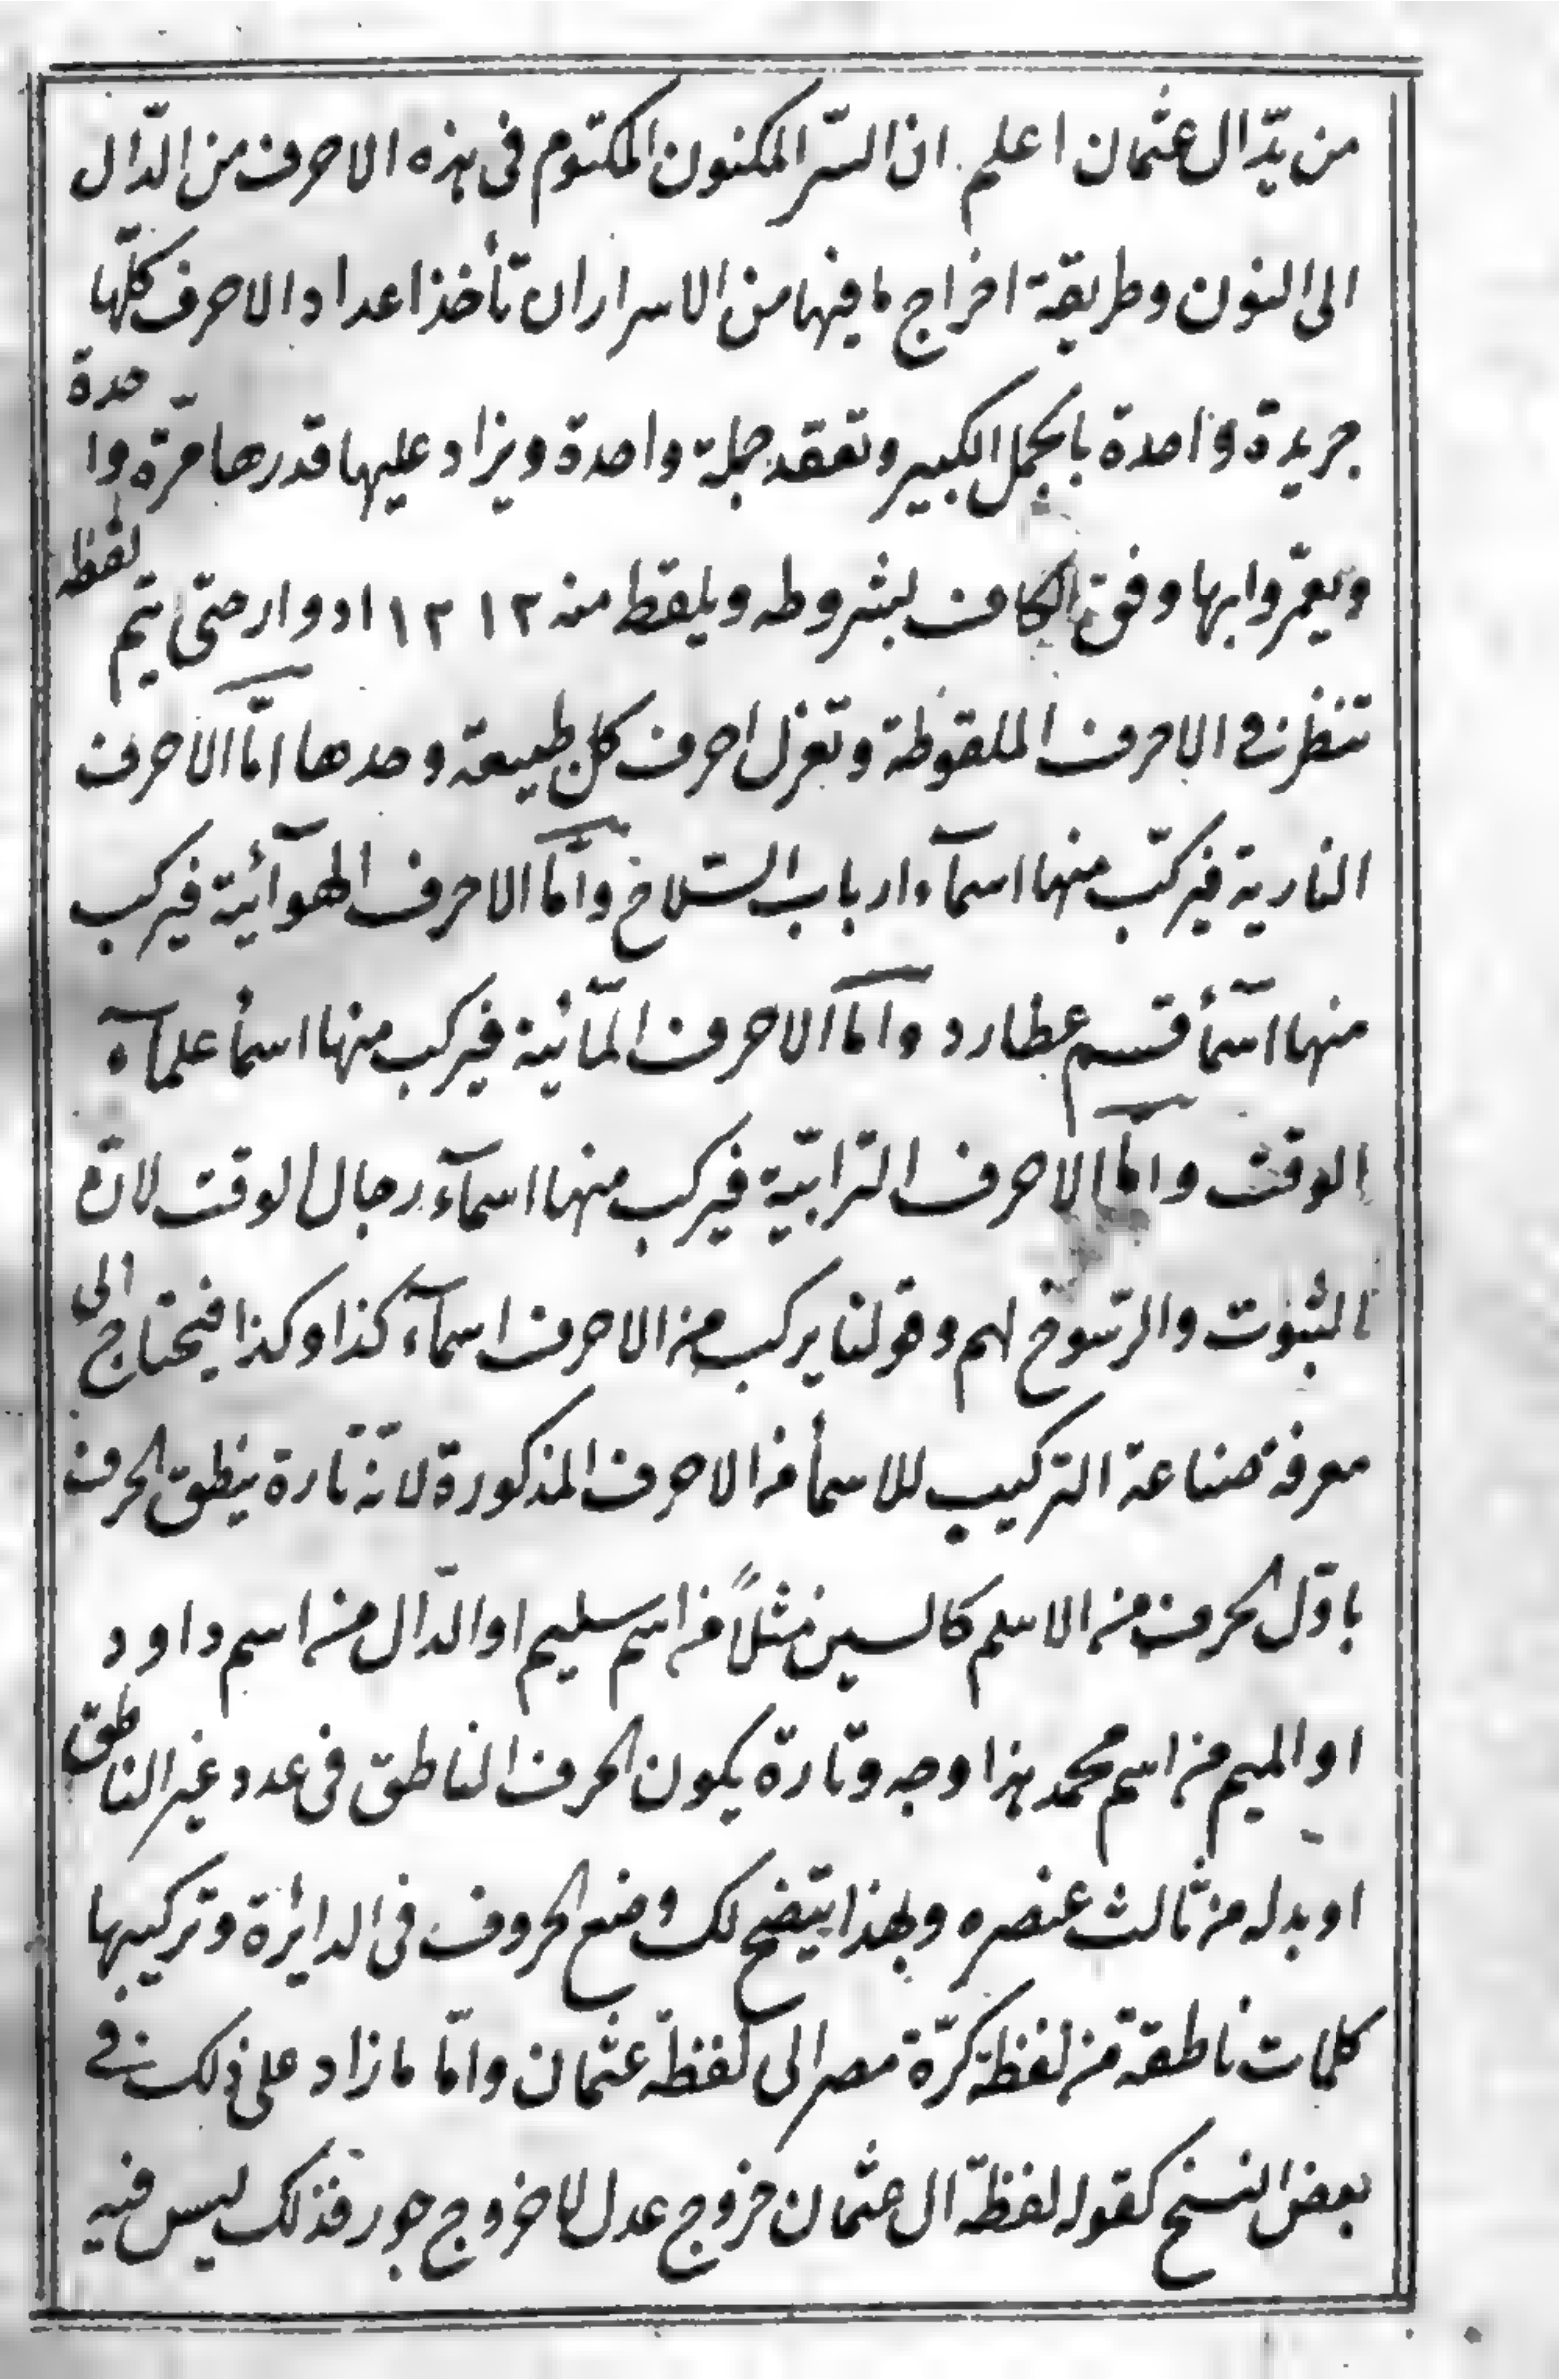 من يد آل عثمان اعلم ان السّر المكنون المكتوم فى هذه الاحرف من الدّال
الى النون وطريقة اخراج ما فيها من الاسرار ان تأخذ اعداد الاحرف كلّها
جريدة واحدة بالجمل الكبير وتعقد جملة واحدة ويزاد عليها قدرها مرّة واحدة
ويعمّروا بها وفق الكاف بشروطه ويلقط منه ١٢ ١٢ ادوار حتى يتم لقطه
تنظر فى الاحرف الملقوطة وتعزل احرف كل طبيعة وحدها امّا الاحرف
النارية فيركّب منها اسمآء ارباب السّلاح وامّا الاحرف الهوآئية فيركب
منها اسمأ قسم عطارد واما الاحرف المآئية فيركب منها اسمأ علمآء
الوقت واما الاحرف الترابيّة فيركب منها اسمآء رجال الوقت لانّ
الثبوت والرسوخ لهم وقولنا يركب من الاحرف اسمآء كذا وكذا فيحتاج الى
معرفة صناعة التركيب للاسمأ من الاحرف المذكورة لانّه تارة ينطق الحرف
باوّل الحرف من الاسم كالسين مثلاً من اسم سليم او الدّال من اسم داود
او الميم من اسم محمد هذا وجه وتارة يكون الحرف الناطق فى عدد غير الناطق
او بدله من ثالث عنصره وبهذا يتضح لك وضع الحروف فى الدايرة وتركيبها
كلمات ناطقة من لفظة كرّة مصر الى لفظة عثمان وامّا ما زاد على ذلك فى
بعض النسخ كقوله لفظة ال عثمان خروج عدل لا خروج جور فذلك ليس فيه